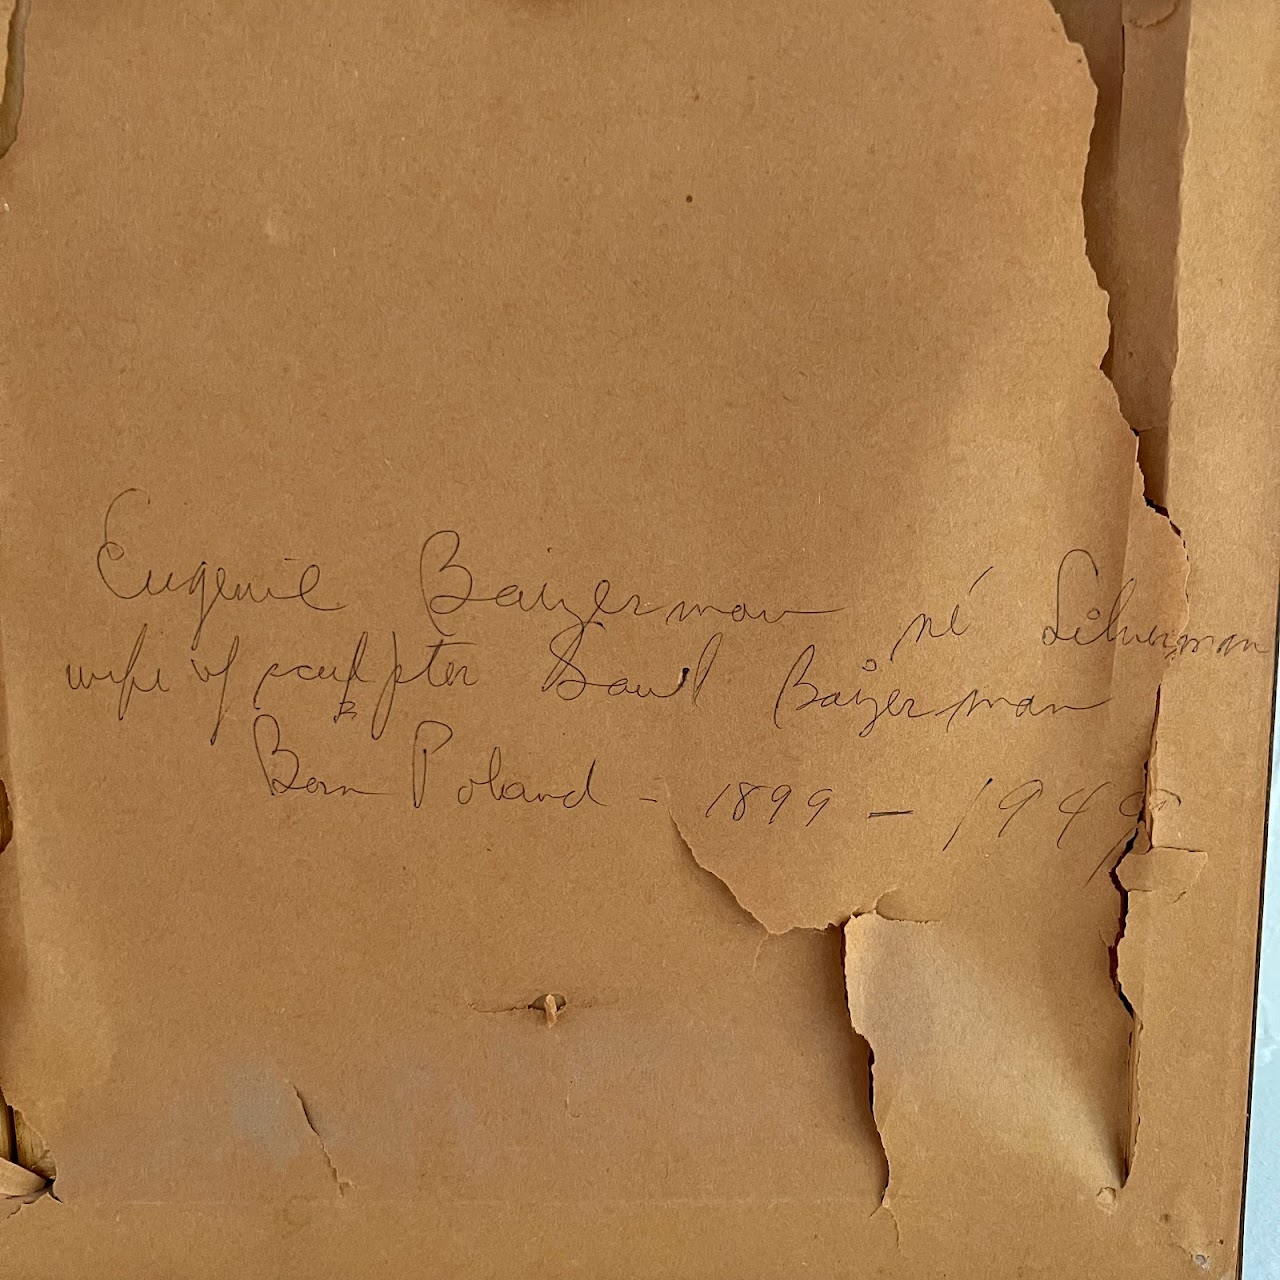 Eugenie Baizerman né Silverman
wife of sculpter Saul Baizerman
Born Poland - 1899 - 1949